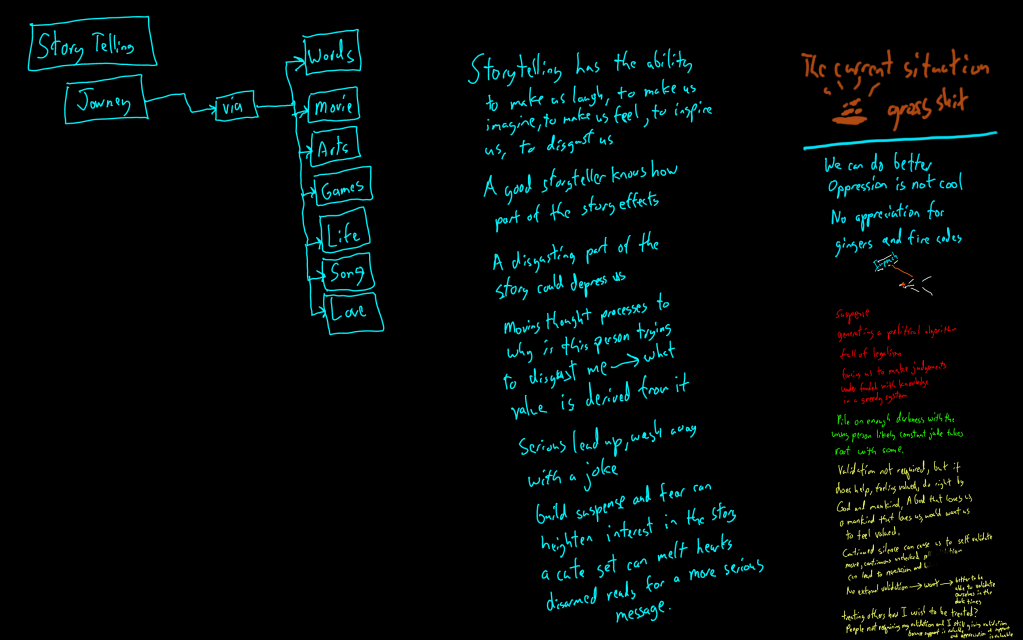 Story Telling
Journey
via
Words
Movie
Arts
Games
Life
Song
Love
Storytelling has the ability
to make us laugh, to make us
imagine, to make us feel, to inspire
us, to disgust us
A good storyteller knows how
part of the story effects
A disgusting part of the
story could depress us
Moving thought processes to
why is this person trying
to disgust me → what
value is derived from it
Serious lead up, wash away
with a joke
build suspense and fear can
heighten interest in the story
a cute set can melt hearts
disarmed ready for a more serious
message.
The current situation
gross shit
We can do better
Oppression is not cool
No appreciation for
gingers and fire codes
Suspense
generating a political algorithm
full of legalism
forcing us to make judgements
under funded with knowledge
in a speedy system
Pile on enough darkness with the
wrong person likely constant jade takes
root with some.
Validation not required, but it
does help, feeling valued, do right by
God and mankind, A God that loves us
a mankind that loves us, would want us
to feel valued.
Continued silence can cause us to self validate
more, continuous unchecked
can lead to revulsion and
No external validation → work → better to be
able to validate
ourselves in the
dark times
treating others how I wish to be treated?
People not requiring my validation and I still giving validation
because support is valuable
and appreciation is valuable